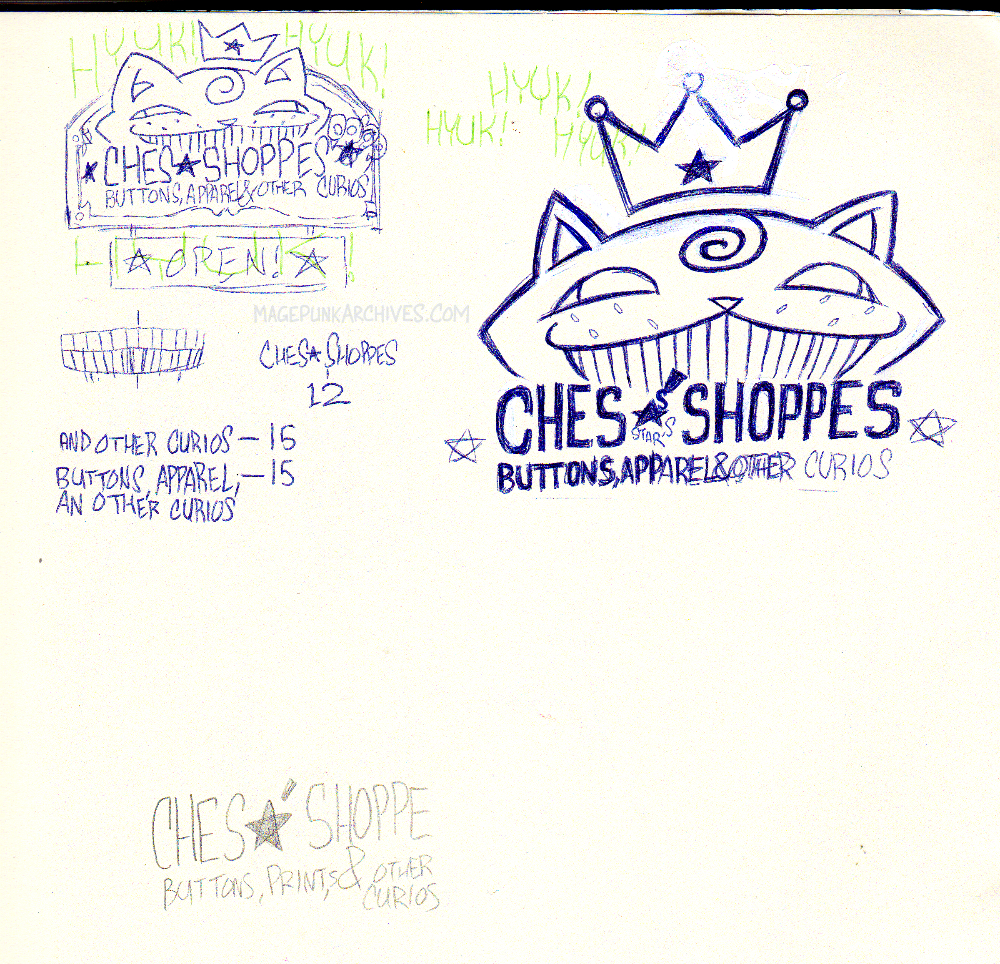 HYUK! HYUK!
CHES★SHOPPES
BUTTONS, APPAREL & OTHER CURIOS
OPEN!
HYUK!
HYUK! HYUK!
MAGEPUNKARCHIVES.COM
CHES★SHOPPES
12
AND OTHER CURIOS — 15
BUTTONS, APPAREL, — 15
AN OTHER CURIOS
CHES★'S SHOPPES
STAR'S
BUTTONS, APPAREL & OTHER CURIOS
CHES★' SHOPPE
BUTTONS, PRINTS, & OTHER
CURIOS